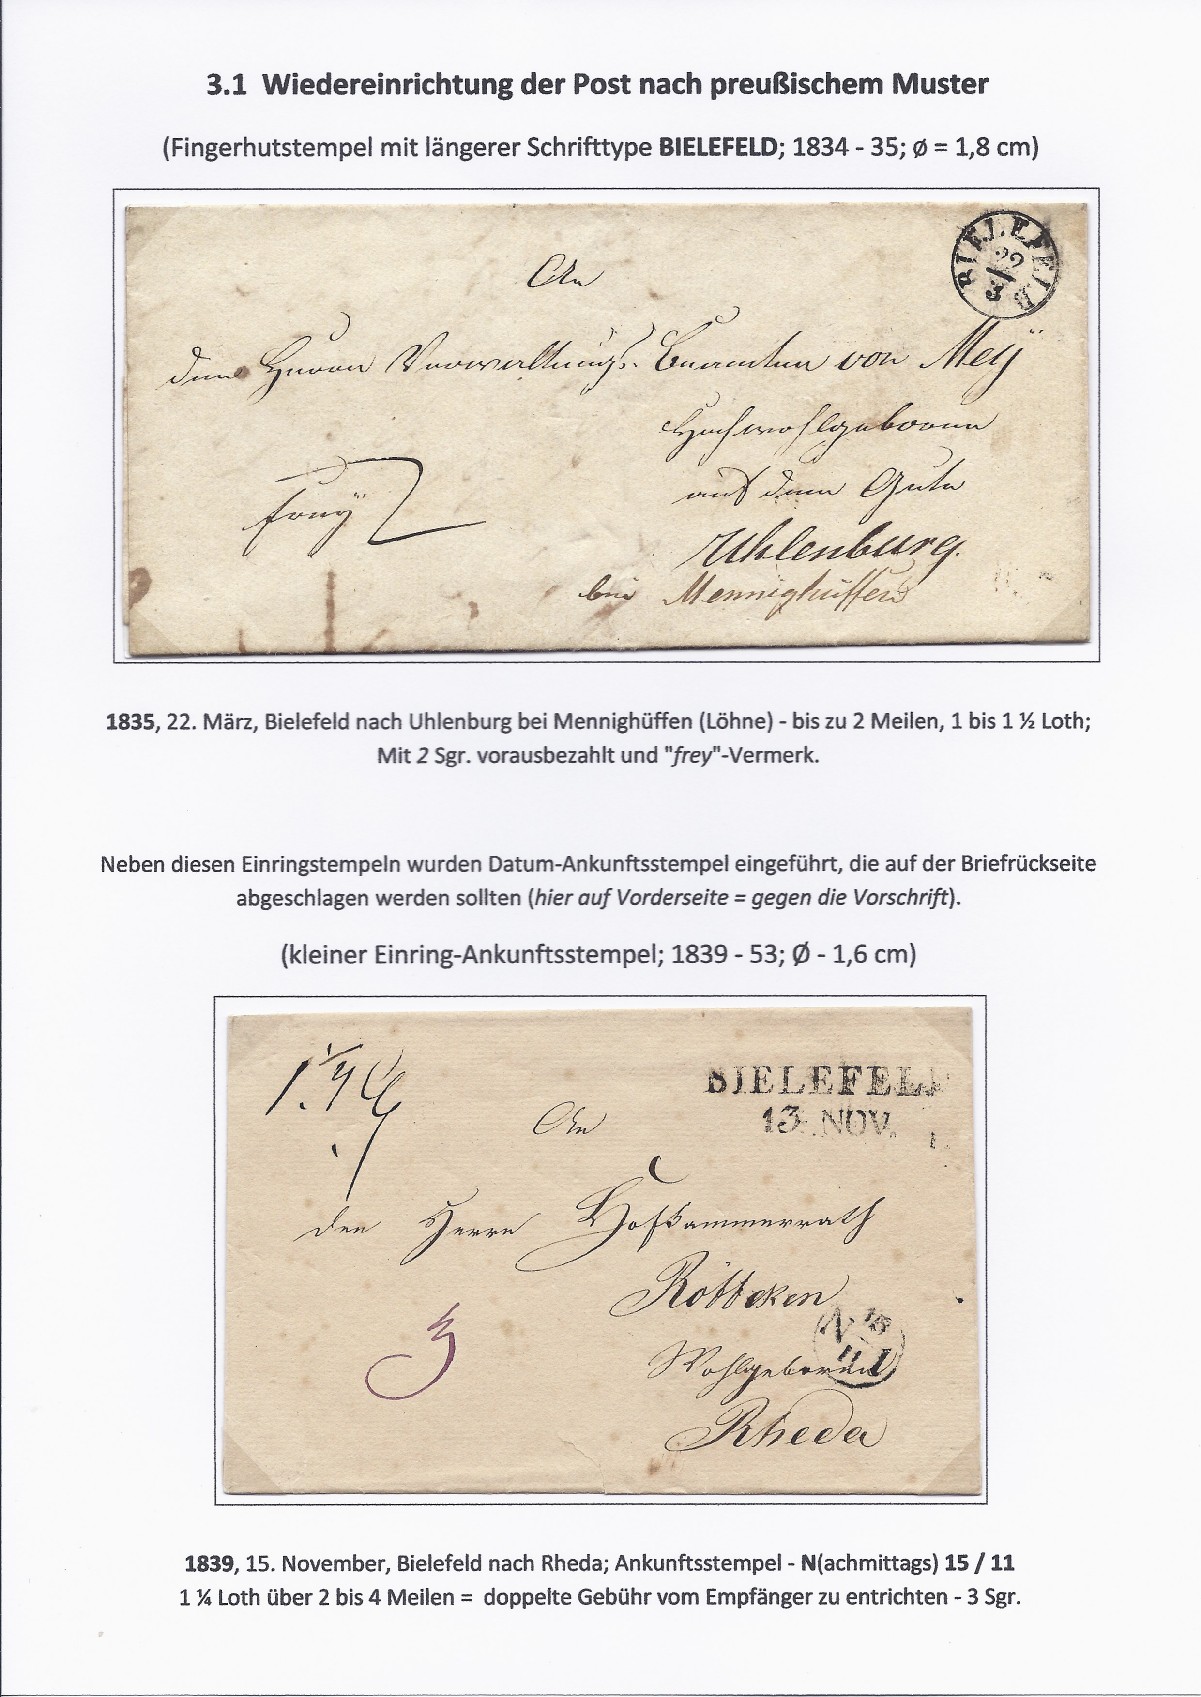 3.1 Wiedereinrichtung der Post nach preußischem Muster
(Fingerhutstempel mit längerer Schrifttype BIELEFELD; 1834 - 35; ø = 1,8 cm)
BIELEFELD
22
3
An
dem Herrn Verwaltungs-Beamten von Meÿ
Hochwohlgeboren
auf dem Gute
freÿ 2
Uhlenburg.
bei Mennighüffen
1835, 22. März, Bielefeld nach Uhlenburg bei Mennighüffen (Löhne) - bis zu 2 Meilen, 1 bis 1 ½ Loth;
Mit 2 Sgr. vorausbezahlt und "frey"-Vermerk.
Neben diesen Einringstempeln wurden Datum-Ankunftsstempel eingeführt, die auf der Briefrückseite
abgeschlagen werden sollten (hier auf Vorderseite = gegen die Vorschrift).
(kleiner Einring-Ankunftsstempel; 1839 - 53; Ø - 1,6 cm)
BIELEFELD
13 NOV.
An
den Herrn Hofkammerrath
Rötteken
N 15
11 I
3
Wohlgeboren
Rheda
1839, 15. November, Bielefeld nach Rheda; Ankunftsstempel - N(achmittags) 15 / 11
1 ¼ Loth über 2 bis 4 Meilen = doppelte Gebühr vom Empfänger zu entrichten - 3 Sgr.